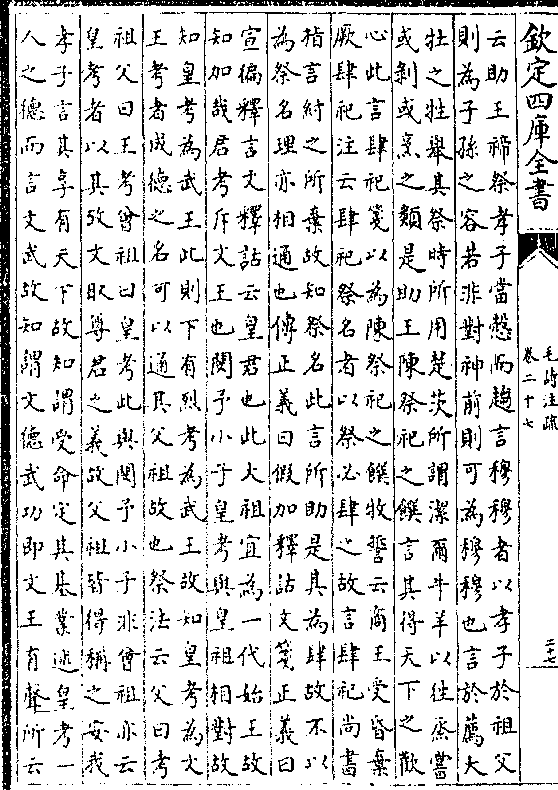 欽定四庫全書
毛詩注疏
卷二十七
二十七
云助王禘祭孝子當慤而趨言穆穆者以孝子於祖父
則為子孫之容若非對神前則可為穆穆也言於薦大
牡之牲舉其祭時所用楚茨所謂潔爾牛羊以往烝嘗
或剝或烹之類是助王陳祭祀之饌言其得天下之歡
心此言肆祀箋以為陳祭祀之饌牧誓云商王受昏棄
厥肆祀注云肆祀祭名者以祭必肆之故言肆祀尚書
指言紂之所棄故知祭名此言所助是其為肆故不以
為祭名理亦相通也傳正義曰假加釋詁文箋正義曰
宣徧釋言文釋詁云皇君也此大祖宜為一代始王故
知加哉君考斥文王也閔予小子皇考與皇祖相對故
知皇考為武王此則下有烈考為武王故知皇考為文
王考者成德之名可以通其父祖故也祭法云父曰考
祖父曰王考曾祖曰皇考此與閔予小子非曾祖亦云
皇考者以其散文取尊君之義故父祖皆得稱之安我
孝子言其享有天下故知謂受命定其基業述皇考一
人之德而言文武故知謂文德武功即文王有聲所云